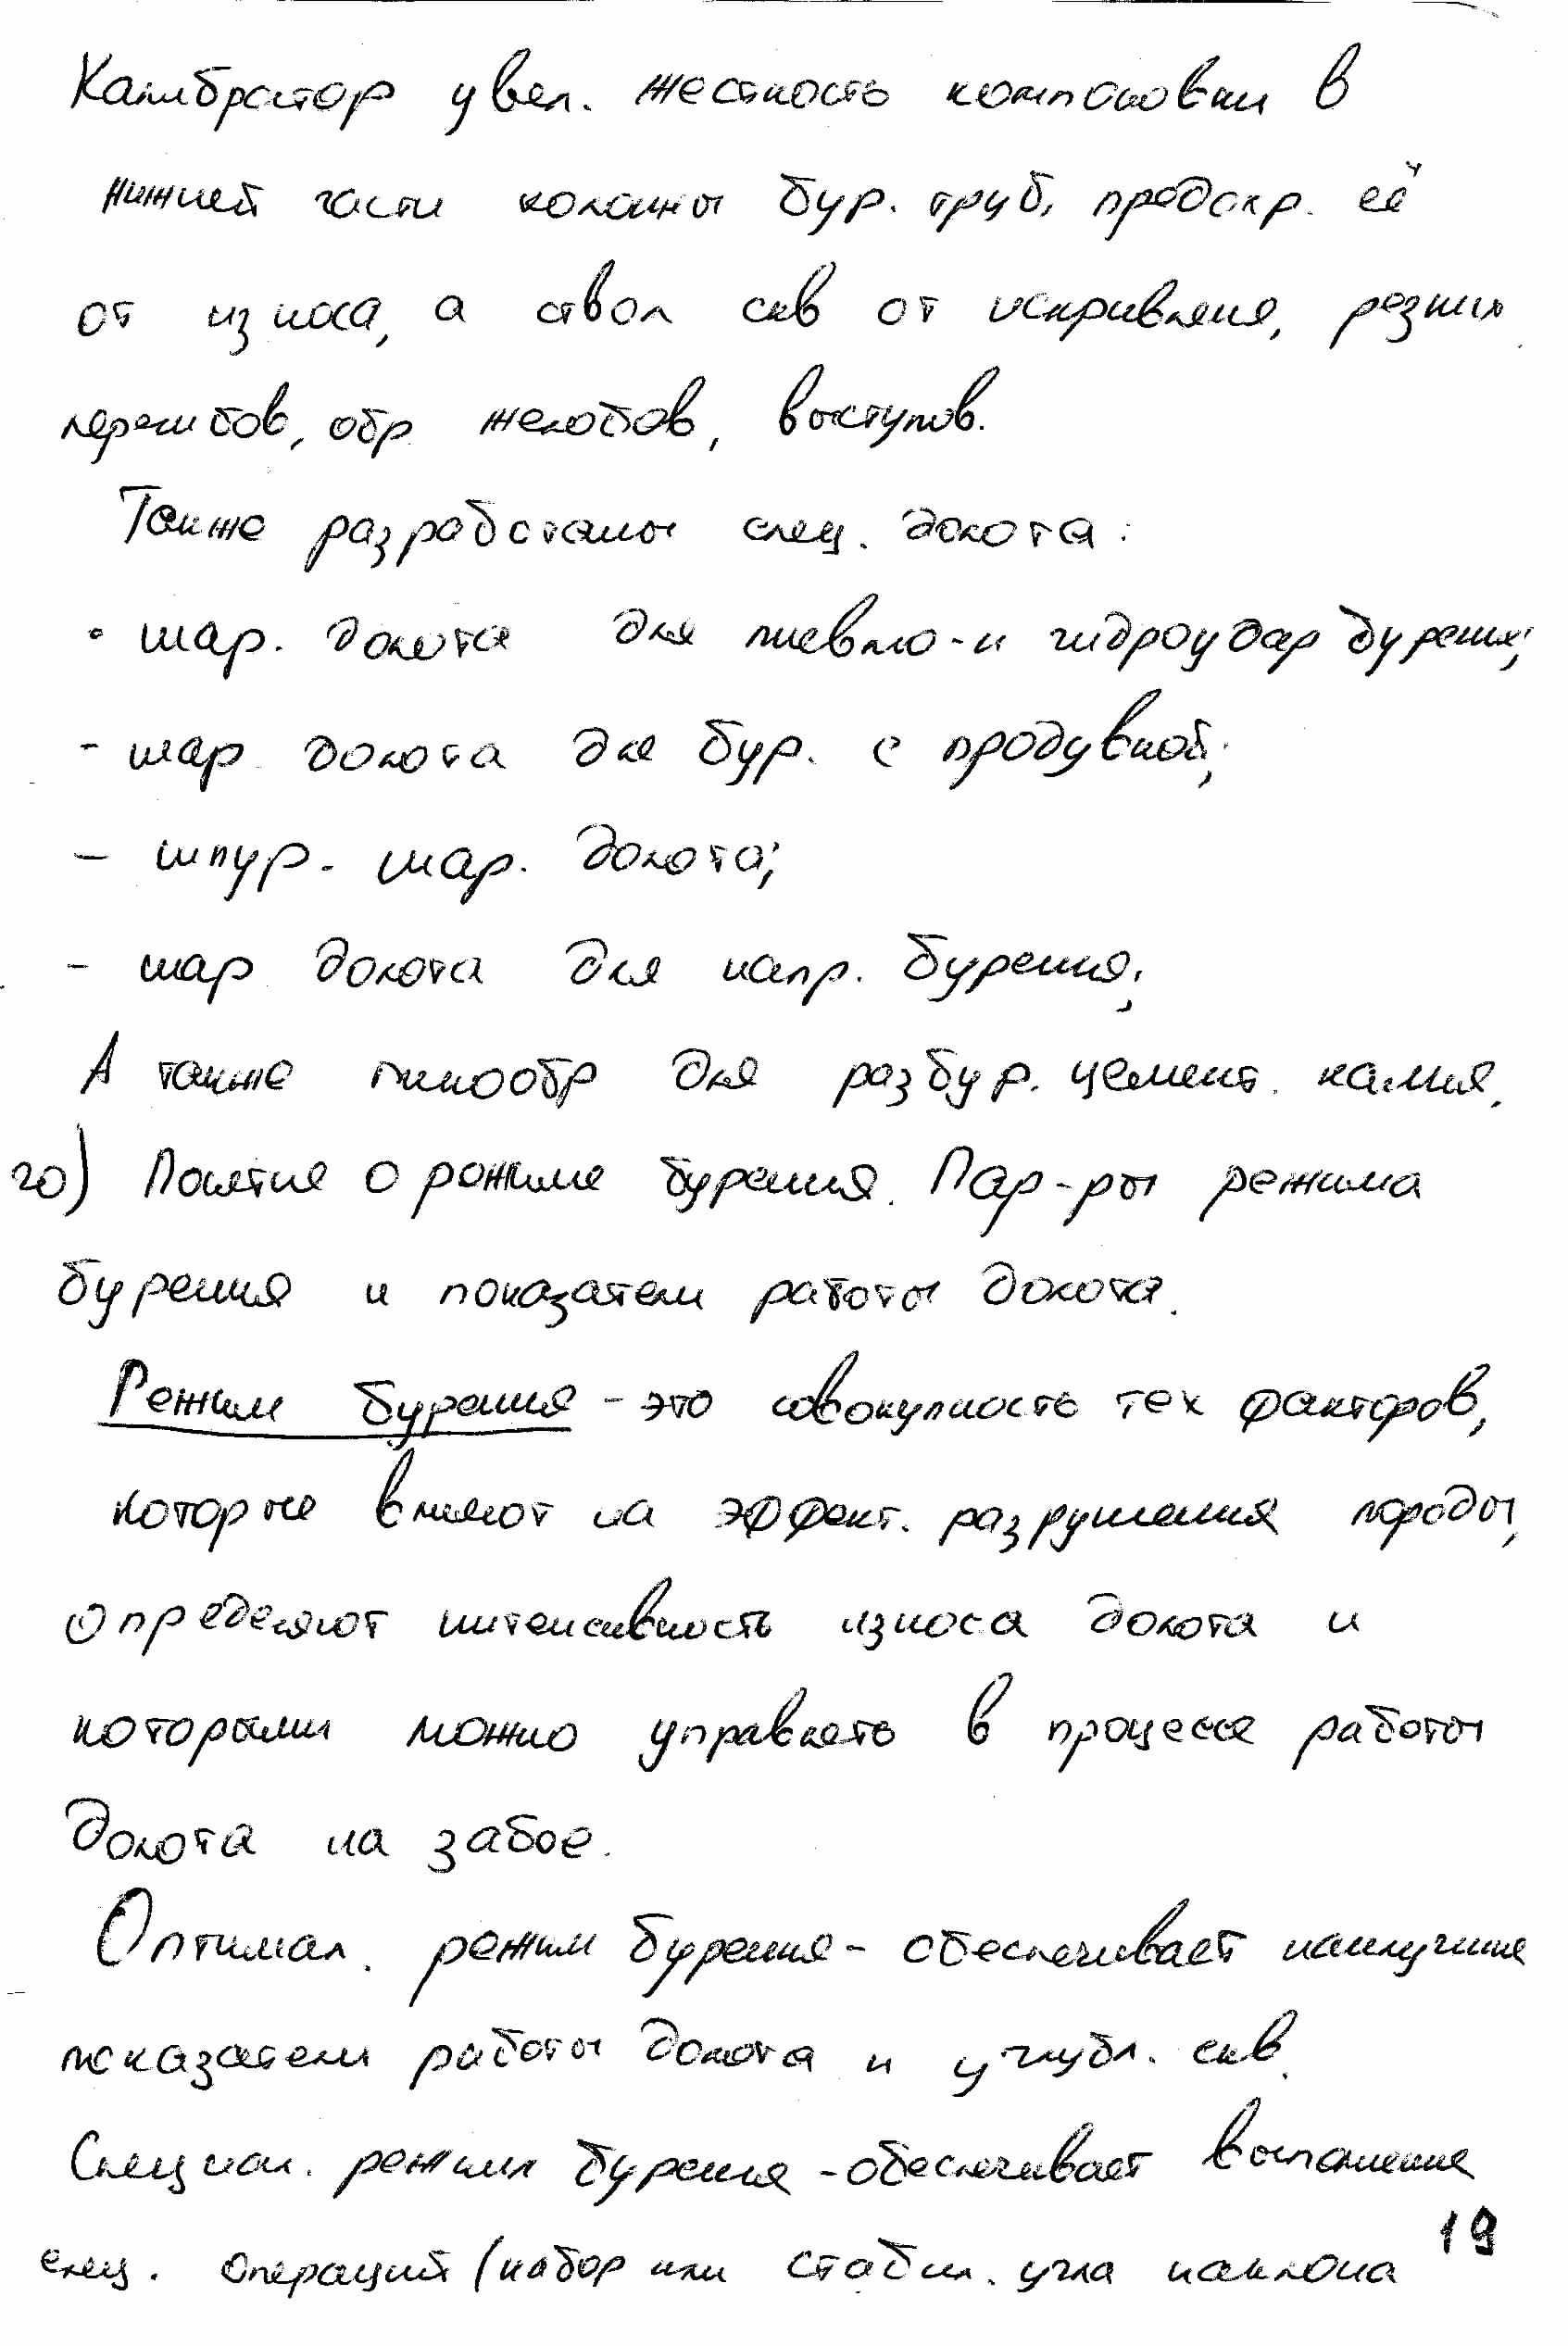 Калибратор увел. жесткость компоновки в
нижней части колонны бур. труб, предохр. её
от износа, а ствол скв от искривления, резких
перегибов, обр. желобов, выступов.
Также разработаны спец. долота:
• шар. долота для пневмо-и гидроудар бурения;
- шар. долота для бур. с продувкой;
- шпур. шар. долота;
- шар долота для напр. бурения;
А также пикообр для разбур. цемент. камня.
20) Понятие о режиме бурения. Пар-ры режима
бурения и показатели работы долота.
Режим бурения - это совокупность тех факторов,
которые влияют на эффект. разрушения породы,
определяют интенсивность износа долота и
которыми можно управлять в процессе работы
долота на забое.
Оптимал. режим бурения - обеспечивает наилучшие
показатели работы долота и углубл. скв.
Специал. режим бурения - обеспечивает выполнение
спец. операций (набор или стабил. угла наклона
19